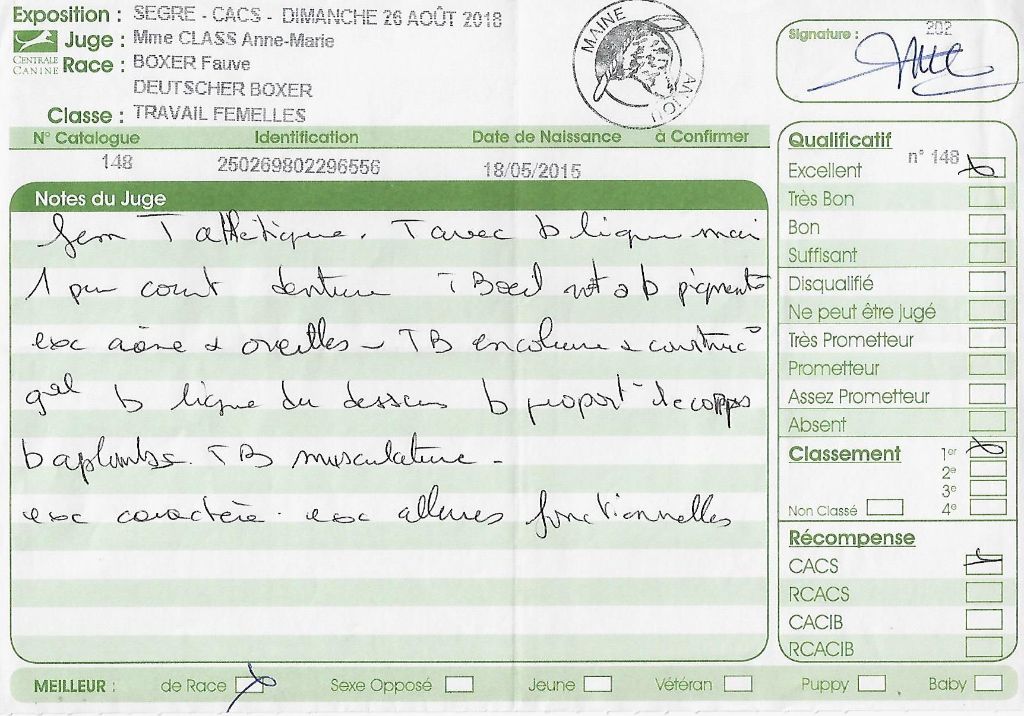 Exposition : SEGRE - CACS - DIMANCHE 26 AOÛT 2018
CENTRALE CANINE
Juge : Mme CLASS Anne-Marie
Race : BOXER Fauve
DEUTSCHER BOXER
Classe : TRAVAIL FEMELLES
MAINE ANJOU
Signature : 202
N° Catalogue Identification Date de Naissance à Confirmer
148 250269802296556 18/05/2015
Notes du Juge
fem T athlétique. T avec b lique mai
1 peu court denture TB oeil not a b pigment°
exc crâne & oreilles - TB encolure & construc°
gal b ligne du dessus b proport° de corps
b aplombs. TB musculature -
exc caractère. exc allures fonctionnelles
Qualificatif
n° 148
Excellent
Très Bon
Bon
Suffisant
Disqualifié
Ne peut être jugé
Très Prometteur
Prometteur
Assez Prometteur
Absent
Classement 1er
2e
3e
Non Classé 4e
Récompense
CACS
RCACS
CACIB
RCACIB
MEILLEUR : de Race Sexe Opposé Jeune Vétéran Puppy Baby